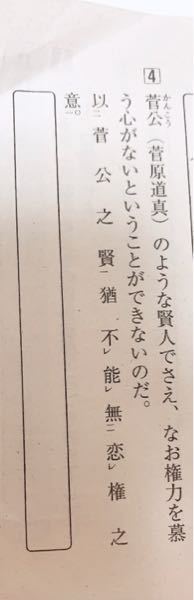 4 菅公（菅原道真）のような賢人でさえ、なお権力を慕
かんこう
う心がないということができないのだ。
以㆓菅公之賢㆒猶不㆑能㆑無㆘恋㆑権之
意㆖。